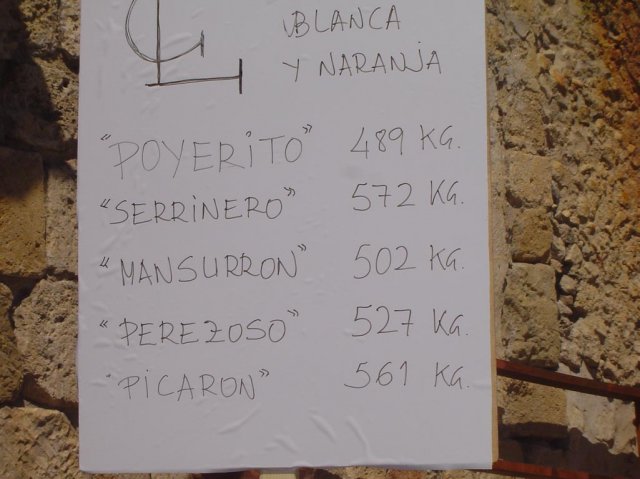 BLANCA
Y NARANJA
"POYERITO" 489 KG.
"SERRINERO" 572 KG.
"MANSURRON" 502 KG.
"PEREZOSO" 527 KG.
"PICARON" 561 KG.